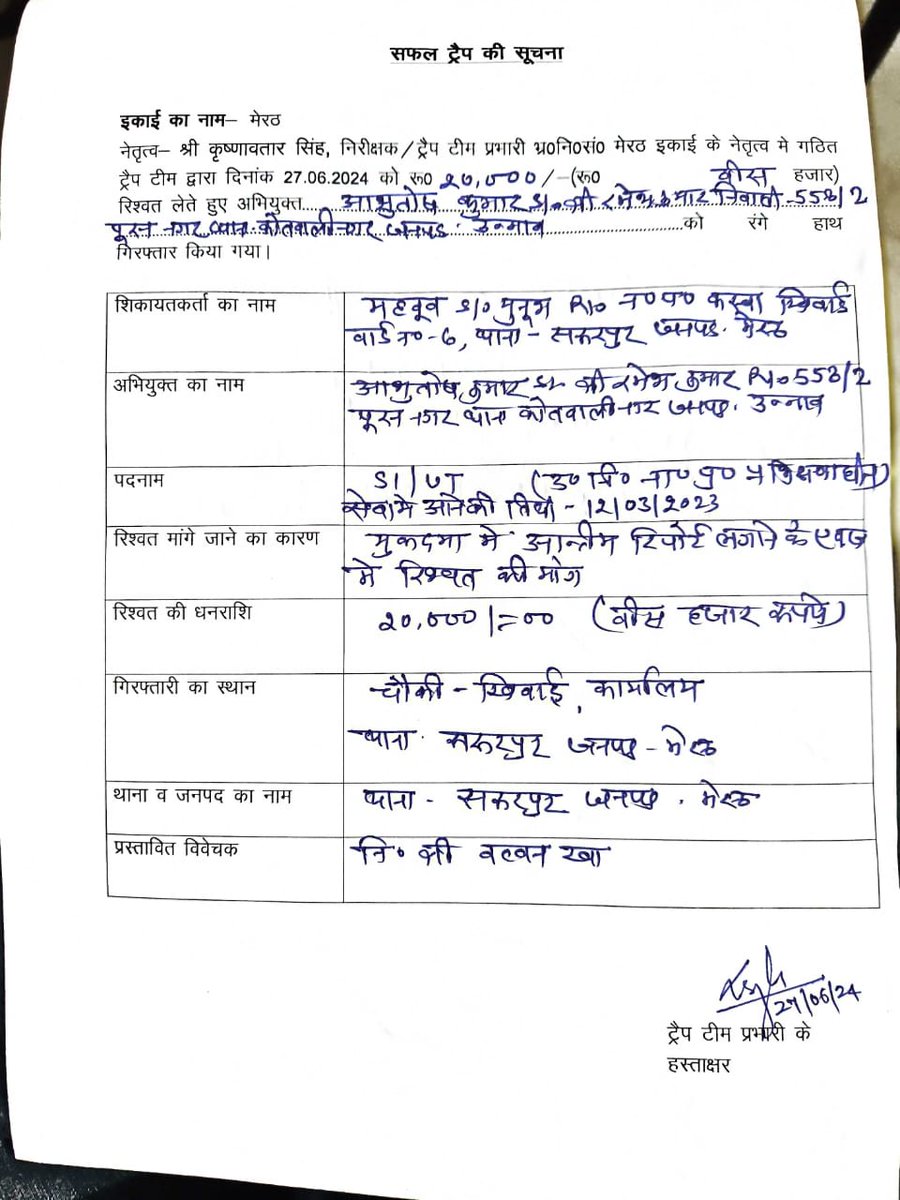 सफल ट्रैप की सूचना
इकाई का नाम– मेरठ
नेतृत्व– श्री कृष्णावतार सिंह, निरीक्षक/ट्रैप टीम प्रभारी भ्र0नि0सं0 मेरठ इकाई के नेतृत्व मे गठित
ट्रैप टीम द्वारा दिनांक 27.06.2024 को रू0 २०,०००/–(रू0 वीस हजार)
रिश्वत लेते हुए अभियुक्त आशुतोष कुमार S/o श्री रमेश कुमार निवासी-553/2
पूरन नगर थाना कोतवाली नगर जनपद. उन्नाव को रंगे हाथ
गिरफ्तार किया गया।
शिकायतकर्ता का नाम
महबूव S/o R/o न०प० कस्वा
वार्ड न०-6, थाना - सरूरपुर जनपद. मेरठ
अभियुक्त का नाम
आशुतोष कुमार S/o श्री रमेश कुमार R/o 553/2
पूरन नगर थाना कोतवाली नगर जनपद. उन्नाव
पदनाम
SI/UT (उ० नि० ना० पु० प्रशिक्षणाधीन)
सेवामे आनेकी तिथी - 12/03/2023
रिश्वत मांगे जाने का कारण
मुकदमा मे अन्तीम रिपोर्ट लगाने के एवज
मे रिश्वत की मांग
रिश्वत की धनराशि
२०,०००/=०० (वीस हजार रूपये)
गिरफ्तारी का स्थान
चौकी - खिवाई,
थाना. सरूरपुर जनपद - मेरठ
थाना व जनपद का नाम
थाना - सरूरपुर जनपद . मेरठ
प्रस्तावित विवेचक
नि० श्री
27/06/24
ट्रैप टीम प्रभारी के
हस्ताक्षर